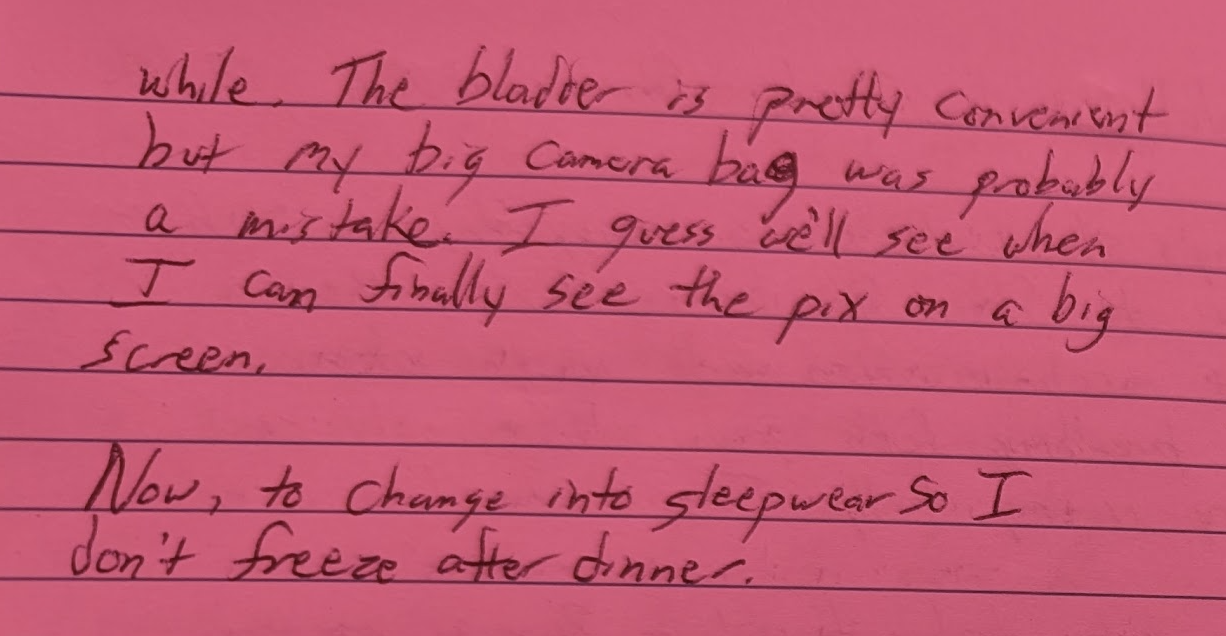 while. The bladder is pretty convenient
but my big camera bag was probably
a mistake. I guess we'll see when
I can finally see the pix on a big
screen.
Now, to change into sleepwear so I
don't freeze after dinner.